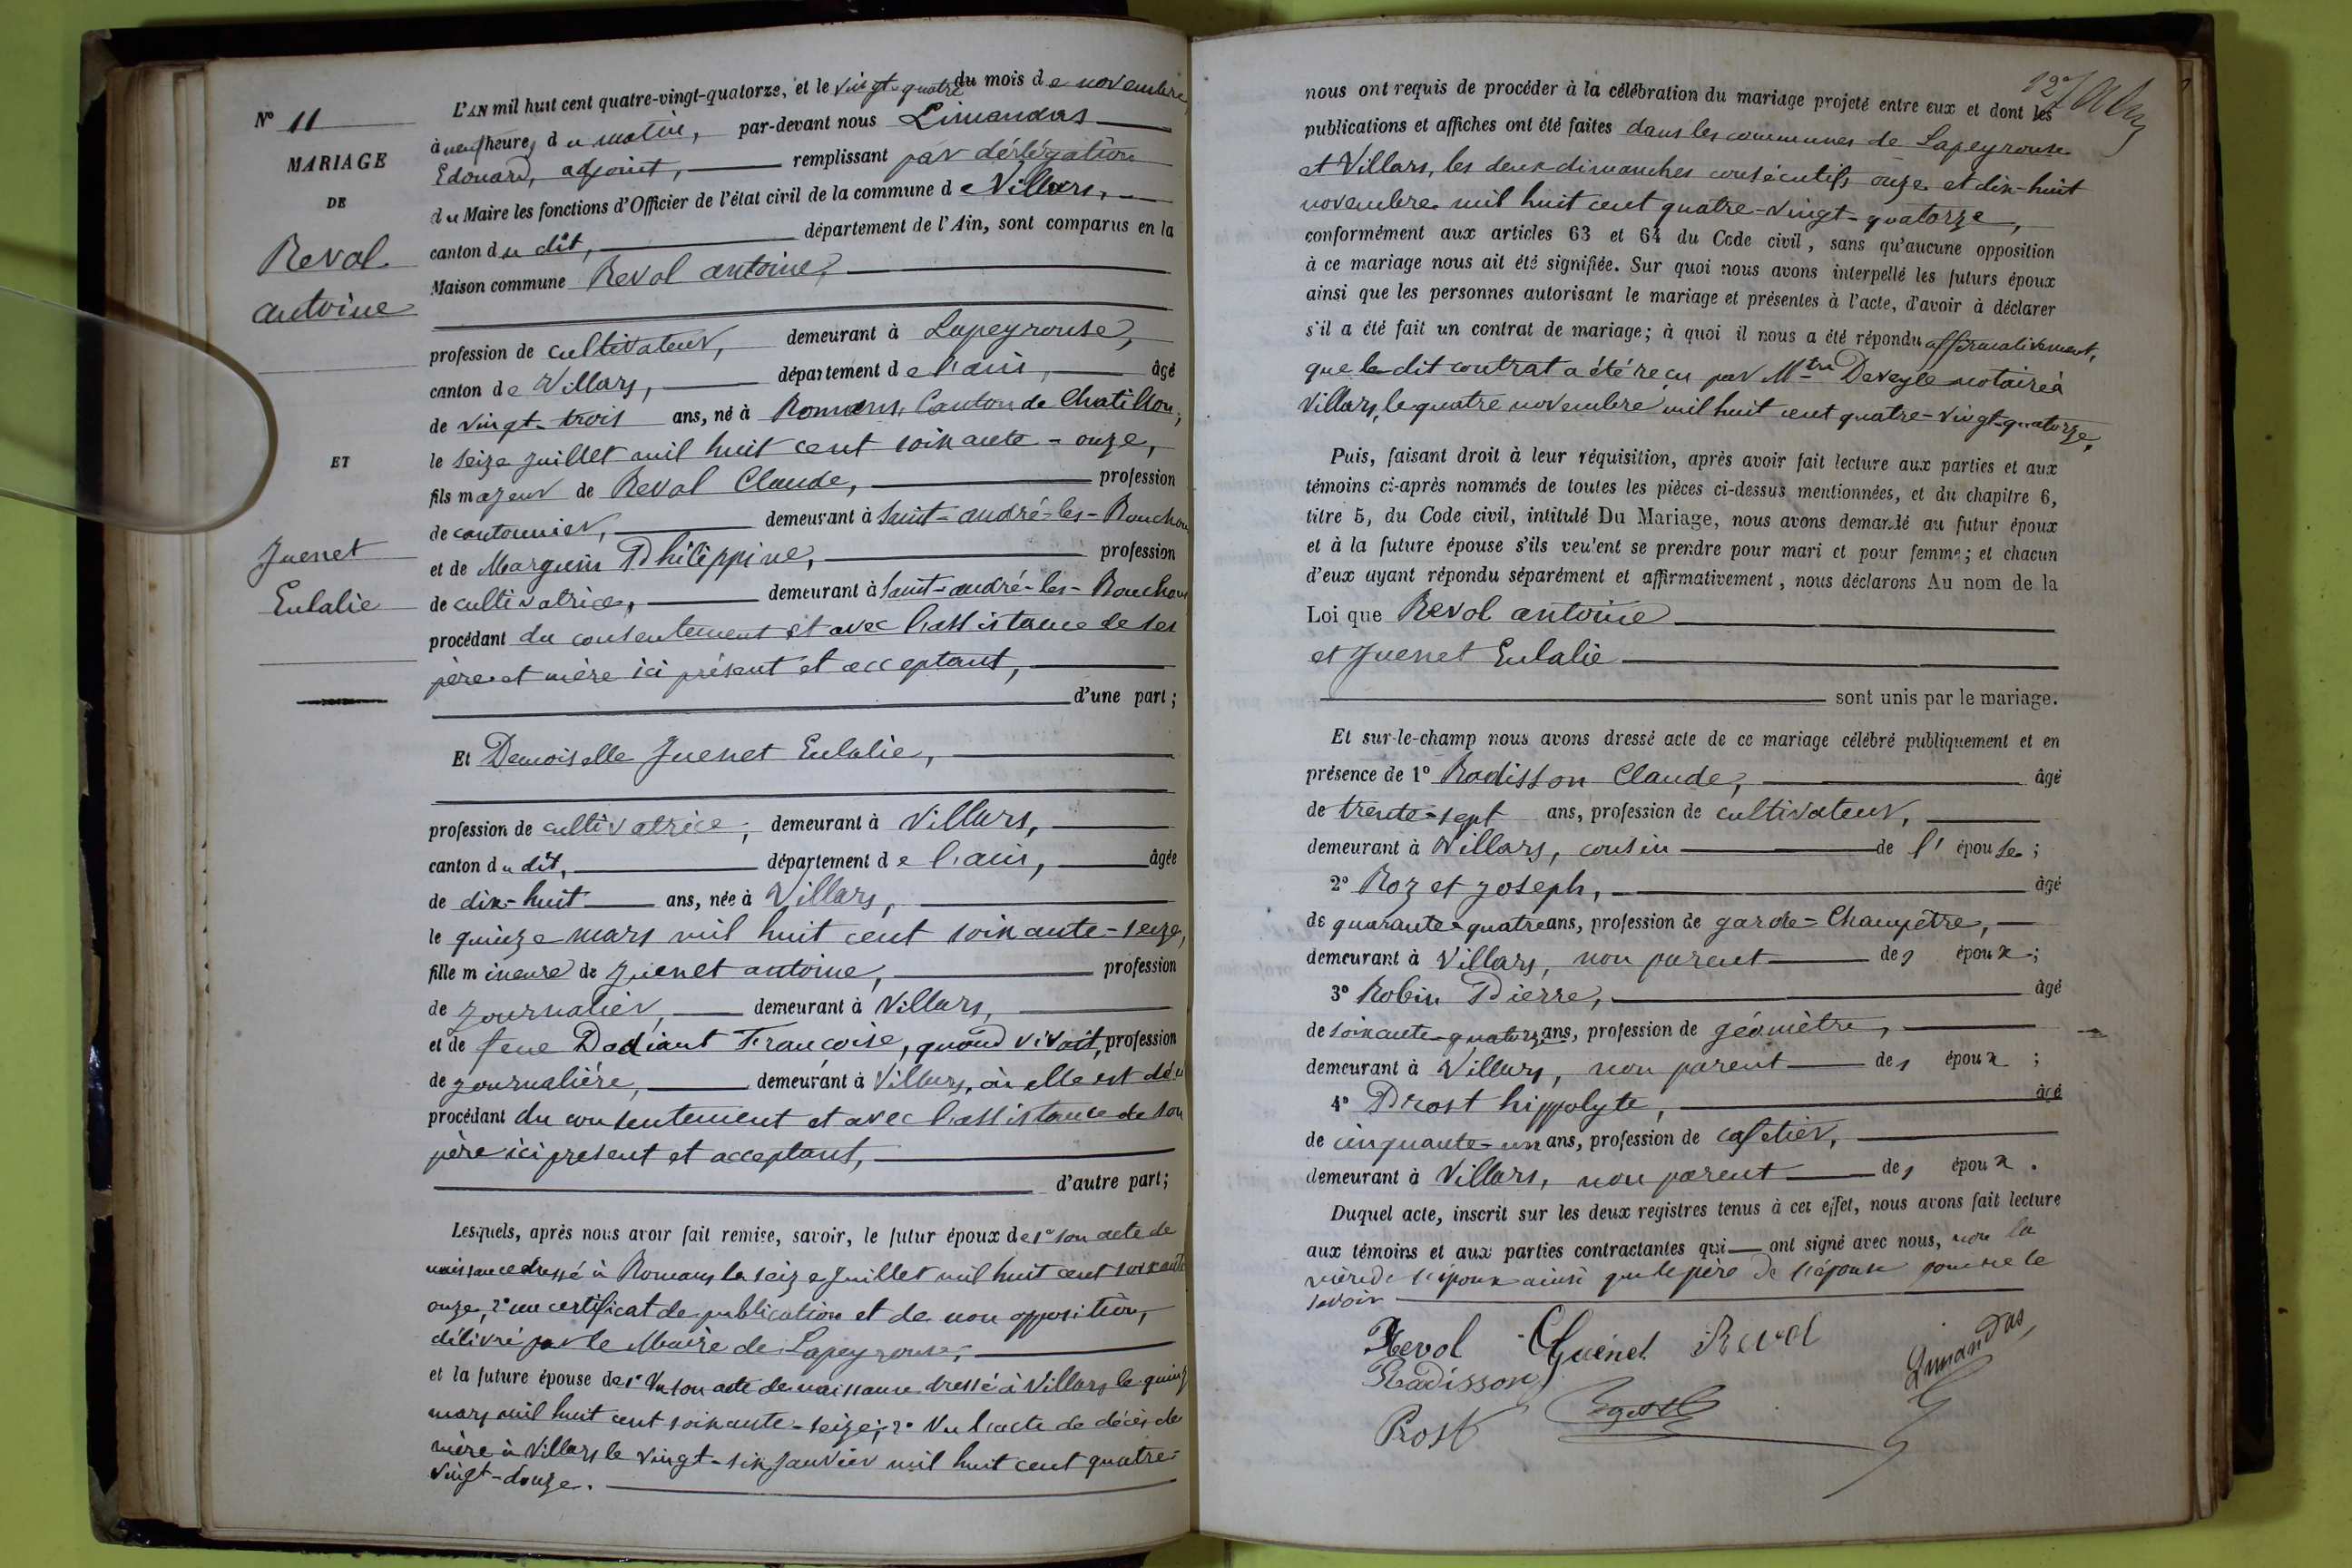 N° 11
MARIAGE
DE
Revol
antoine
ET
Juenet
Eulalie
L'AN mil huit cent quatre-vingt-quatorze, et le vingt-quatre du mois de novembre
à neuf heures du matin, par-devant nous Limandas
Edouard, adjoint, remplissant par délégation
du Maire les fonctions d'Officier de l'état civil de la commune de Villars,
canton du dit, département de l'Ain, sont comparus en la
Maison commune Revol antoine,
profession de cultivateur, demeurant à Lapeyrouse,
canton de Villars, département de l'ain, âgé
de vingt-trois ans, né à Romans, Canton de Chatillon,
le seize juillet mil huit cent soixante-onze,
fils majeur de Revol Claude, profession
de cantonnier, demeurant à Saint-andré-les-Bouchou
et de Marguin Philippine, profession
de cultivatrice, demeurant à Saint-andré-les-Bouchoux
procédant du consentement et avec l'assistance de ses
père et mère ici présent et acceptant,
d'une part;
Et Demoiselle Juenet Eulalie,
profession de cultivatrice, demeurant à Villars,
canton du dit, département de l'ain, âgée
de dix-huit ans, née à Villars,
le quinze mars mil huit cent soixante-seize,
fille mineure de Juenet antoine, profession
de journalier, demeurant à Villars,
et de feue Dodiant Françoise, quand vivait, profession
de journalière, demeurant à Villars, où elle est déc
procédant du consentement et avec l'assistance de son
père ici présent et acceptant,
d'autre part;
Lesquels, après nous avoir fait remise, savoir, le futur époux de 1° son acte de
naissance dressé à Romans le seize juillet mil huit cent soixante
onze, 2° un certificat de publication et de non opposition,
délivré par le Maire de Lapeyrouse,
et la future épouse de 1° Vu son acte de naissance dressé à Villars le quinz
mars mil huit cent soixante-seize; 2° Vu l'acte de décès de
mère à Villars le vingt-six janvier mil huit cent quatre-
vingt-douze.
nous ont requis de procéder à la célébration du mariage projeté entre eux et dont les
publications et affiches ont été faites dans les communes de Lapeyrouse
et Villars, les deux dimanches consécutifs onze et dix-huit
novembre mil huit cent quatre-vingt-quatorze,
conformément aux articles 63 et 64 du Code civil, sans qu'aucune opposition
à ce mariage nous ait été signifiée. Sur quoi nous avons interpellé les futurs époux
ainsi que les personnes autorisant le mariage et présentes à l'acte, d'avoir à déclarer
s'il a été fait un contrat de mariage; à quoi il nous a été répondu affirmativement,
que le dit contrat a été reçu par Mtre Deveyle notaire à
Villars, le quatre novembre mil huit cent quatre-vingt-quatorze,
Puis, faisant droit à leur réquisition, après avoir fait lecture aux parties et aux
témoins ci-après nommés de toutes les pièces ci-dessus mentionnées, et du chapitre 6,
titre 5, du Code civil, intitulé Du Mariage, nous avons demandé au futur époux
et à la future épouse s'ils veulent se prendre pour mari et pour femme; et chacun
d'eux ayant répondu séparément et affirmativement, nous déclarons Au nom de la
Loi que Revol antoine
et Juenet Eulalie
sont unis par le mariage.
Et sur-le-champ nous avons dressé acte de ce mariage célébré publiquement et en
présence de 1° Radisson Claude, âgé
de trente-sept ans, profession de cultivateur,
demeurant à Villars, cousin de l'épouse;
2° Rozet joseph, âgé
de quarante-quatre ans, profession de garde-Champêtre,
demeurant à Villars, non parent des époux;
3° Robin Pierre, âgé
de soixante-quatorze ans, profession de géomètre,
demeurant à Villars, non parent des époux;
4° Prost hippolyte, âgé
de cinquante-un ans, profession de cafetier,
demeurant à Villars, non parent des époux.
Duquel acte, inscrit sur les deux registres tenus à cet effet, nous avons fait lecture
aux témoins et aux parties contractantes qui ont signé avec nous, non la
mère de l'époux ainsi que le père de l'épouse pour ne le
savoir
Revol Guénet Revol
Radisson Limandas
Prost